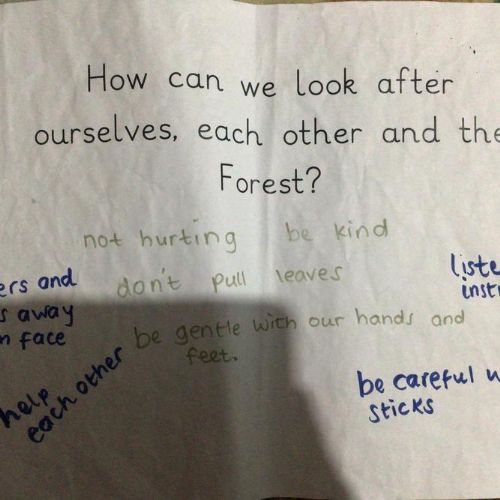 How can we look after
ourselves, each other and the
Forest?
not hurting be kind
don't pull leaves
be gentle with our hands and
feet.
and
away
face
help
each other
be careful
sticks